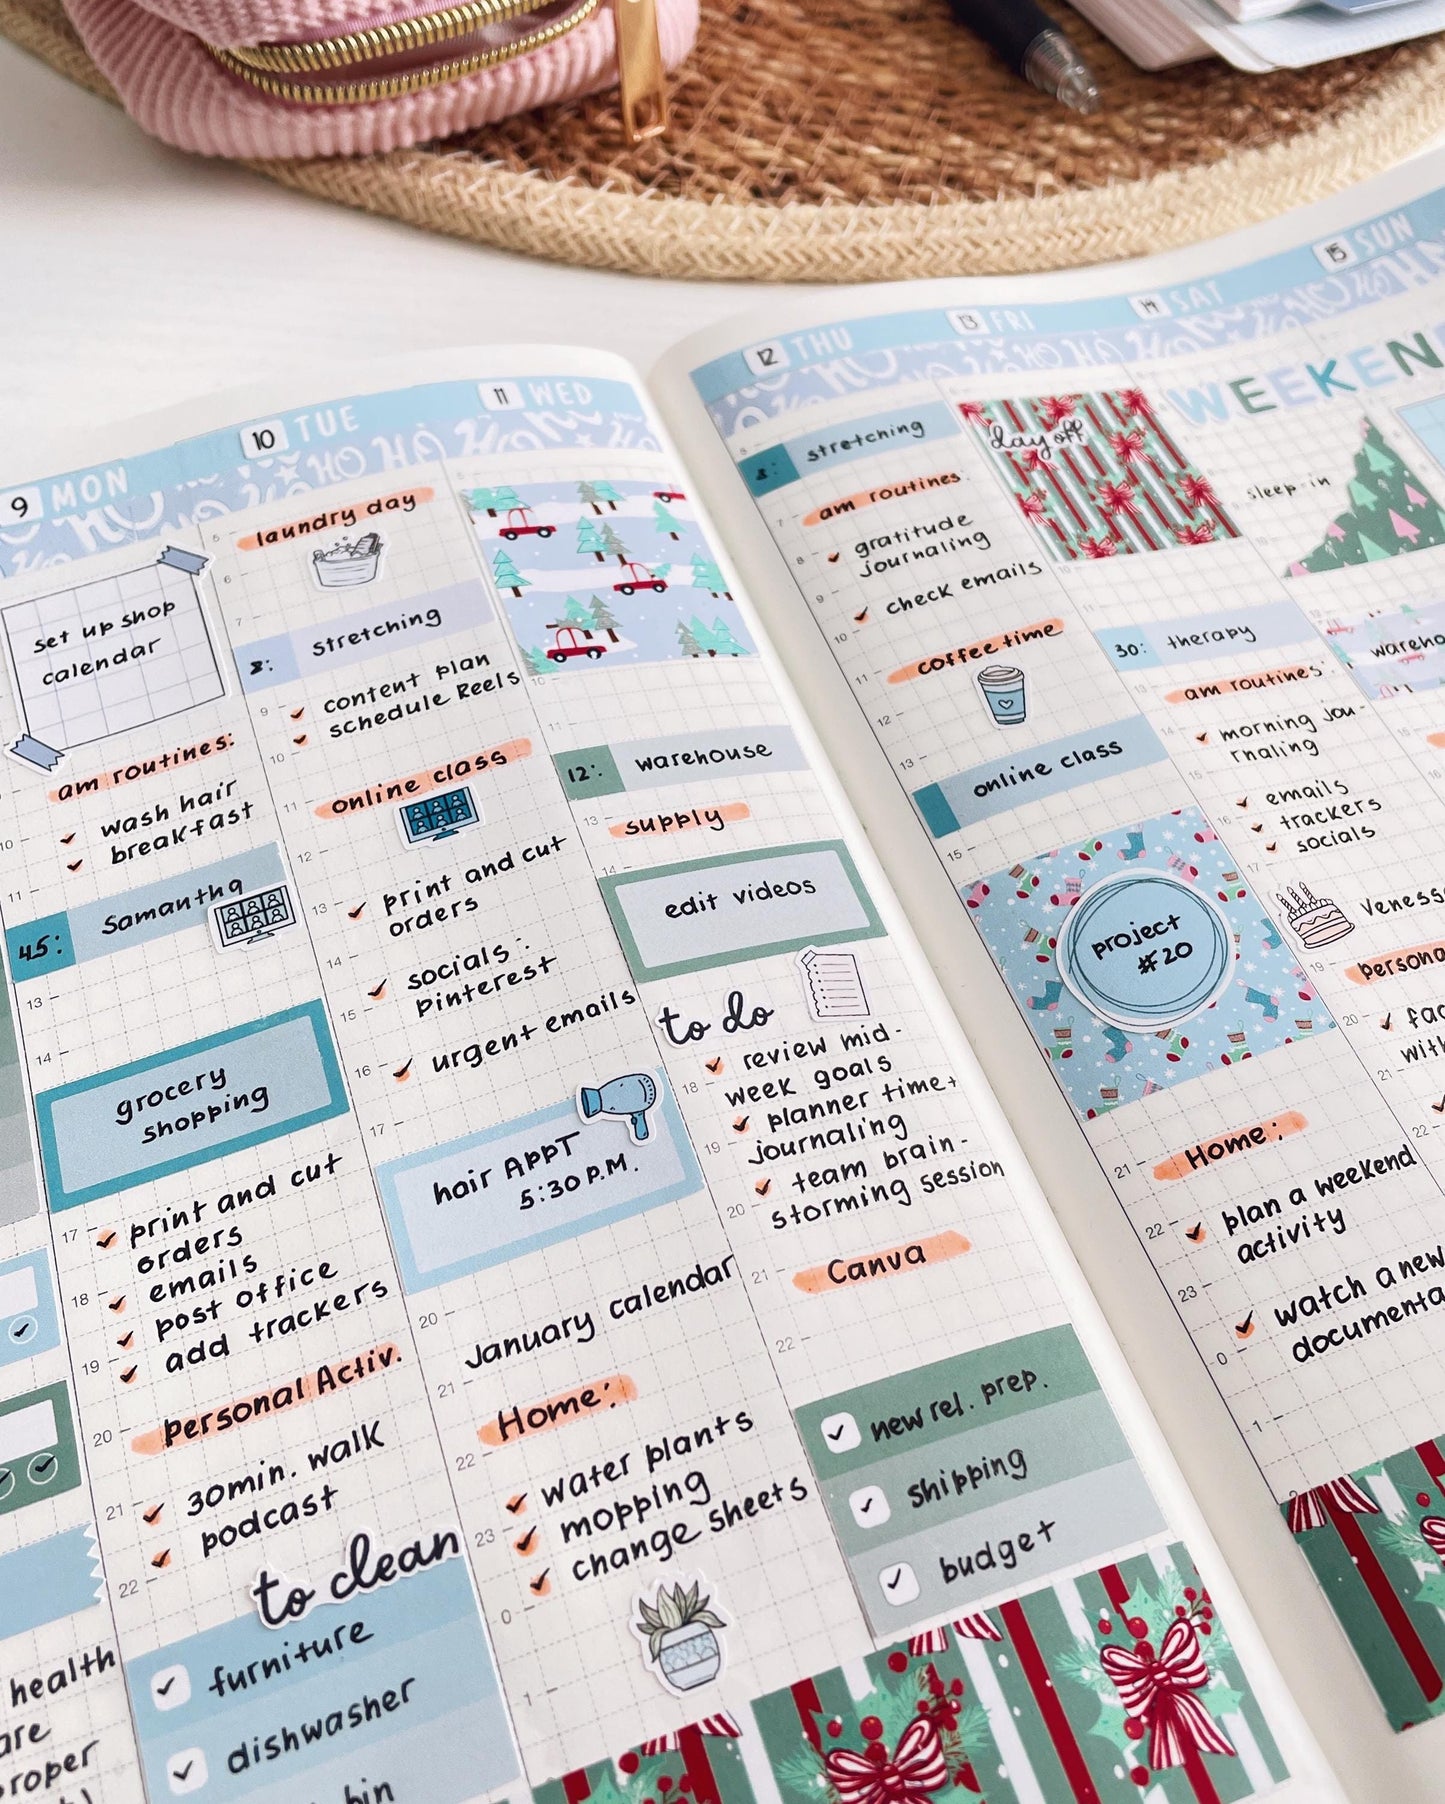 9 MON
set up shop
calendar
am routines:
wash hair
breakfast
45: Samantha
grocery
shopping
print and cut
orders
emails
post office
add trackers
Personal Activ.
30min. walk
podcast
to clean
furniture
dishwasher
bin
health
10 TUE
laundry day
8: stretching
content plan
schedule Reels
online class
print and cut
orders
socials:
pinterest
urgent emails
hair APPT
5:30 P.M.
January calendar
Home:
water plants
mopping
change sheets
11 WED
HO HO
12: warehouse
supply
edit videos
to do
review mid-
week goals
planner time+
journaling
team brain-
storming session
Canva
new rel. prep.
shipping
budget
12 THU
8: stretching
am routines:
gratitude
journaling
check emails
coffee time
online class
project
#20
Home:
plan a weekend
activity
watch a new
documenta
13 FRI
day off
30: therapy
am routines:
morning jou-
rnaling
emails
trackers
socials
Veness
persona
fac
with
14 SAT
WEEKEN
sleep-in
wareho
15 SUN